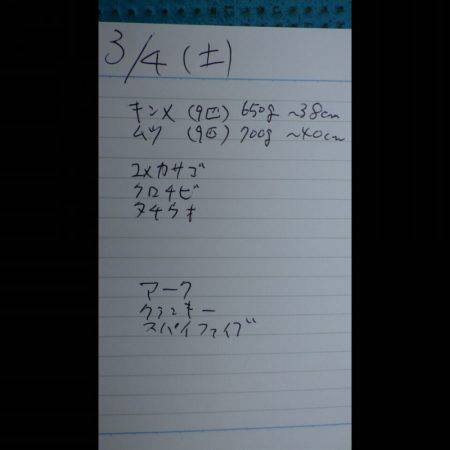 3/4(土)
キンメ (9匹) 650g ~38cm
ムツ (9匹) 700g ~40cm
ユメカサゴ
クロシビ
タチウオ
アーク
クランキー
スパイファイブ